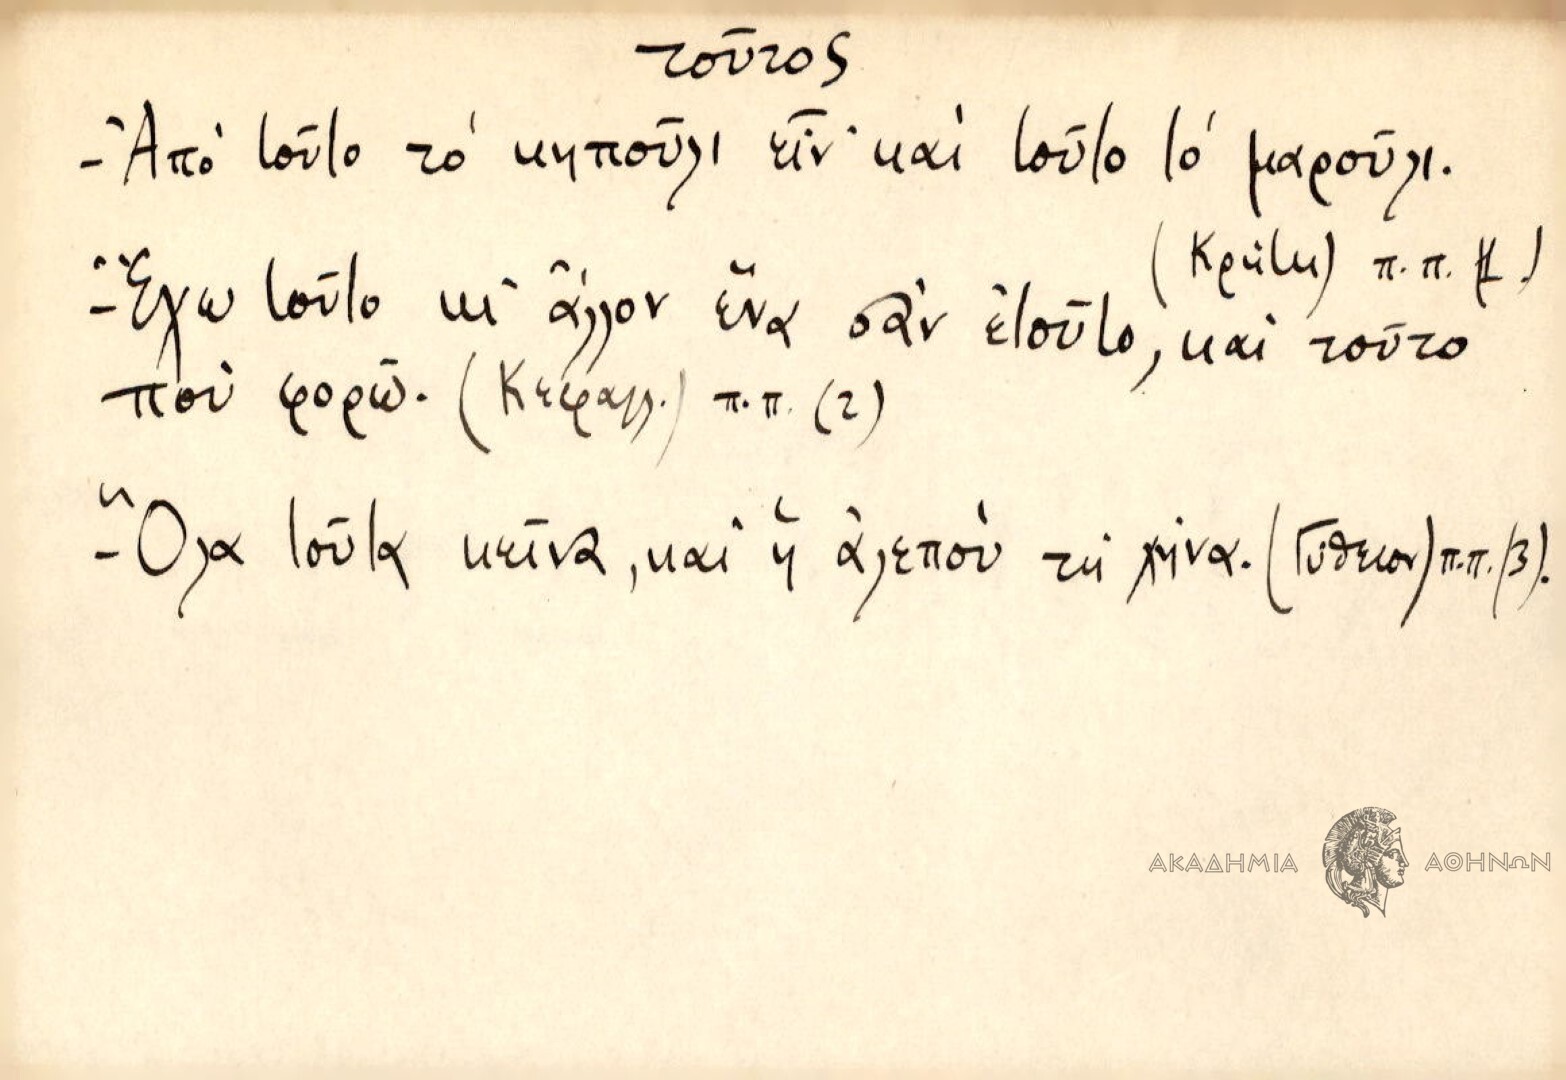 τοῦτος
- Ἀπὸ τοῦτο τὸ κηποῦλι εἶν' καὶ τοῦτο τὸ μαροῦλι.
(Κρήτη) π.π.
- Ἔχω τοῦτο κι ἄλλον ἕνα σὰν ἐτοῦτο, καὶ τοῦτο
ποὺ φορῶ. (Κεφαλλ.) π.π. (2)
- Ὅλα τοῦτα κεῖνα, καὶ ἡ ἀλεποὺ τὴ χήνα. (Γύθειον) π.π. (3).
ΑΚΑΔΗΜΙΑ ΑΘΗΝΩΝ